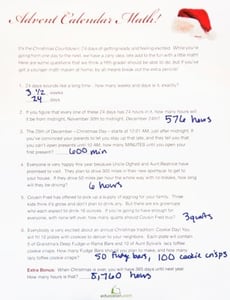 Advent Calendar Math!
It's the Christmas Countdown: 24 days of getting ready and being excited. While you're
going from one day to the next, we have a zany idea: add to the fun with a little math!
Here are some questions that we think a fifth grader should be able to do, but if you've
got a younger math maven at home, by all means break out the extra pencils!
1. 24 days sounds like a long time. How many weeks and days is it, exactly?
3 1/2 weeks
24 days
2. If you figure that every one of these 24 days has 24 hours in it, how many hours will
it be from midnight, November 30th to midnight, December 24th? 576 hours
3. The 25th of December – Christmas Day – starts at 12:01 AM, just after midnight. If
you've convinced your parents to let you stay up that late, and they tell you that
you can't open presents until 10 AM, how many MINUTES until you open your
first present? 600 min
4. Everyone is very happy this year because Uncle Oghed and Aunt Beatrice have
promised to visit. They plan to drive 300 miles in their new sportscar to get to
your house. If they drive 50 miles per hour the whole way with no breaks, how long
will they be driving? 6 hours
5. Cousin Fred has offered to pick up a supply of eggnog for your family. Three
kids think it's gross and don't plan to drink any. But there are six grownups
who each expect to drink 16 ounces. If you're going to have enough for
everyone, with none left over, how many quarts should Cousin Fred buy?
3 quarts
6. Everybody is very excited about an annual Christmas tradition: Cookie Day! You
will 10 plates of cookies to deliver to your neighbors. Each plate will contain
5 of Grandma's Deep Fudge or Flame Bars and 10 of Aunt Bonnie's lacy toffee
cookie crisps. How many Fudge Bars should you plan to make, and how many
lacy toffee cookies? 50 Fudge bars, 100 cookie crisps
Extra Bonus. When Christmas is over, you will have 365 days until next year!
How many hours is that? 8,760 hours
education.com